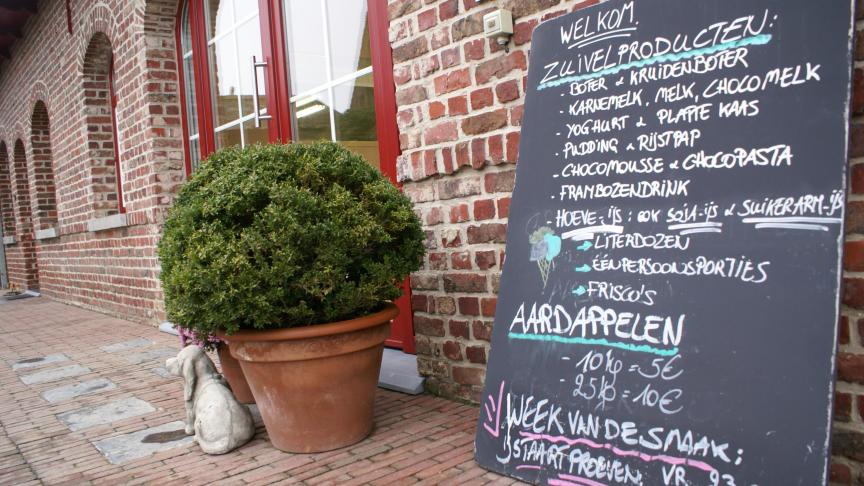 WELKOM.
ZUIVELPRODUCTEN:
- BOTER & KRUIDENBOTER
- KARNEMELK, MELK, CHOCOMELK
- YOGHURT & PLATTE KAAS
- PUDDING & RIJSTPAP
- CHOCOMOUSSE & CHOCOPASTA
- FRAMBOZENDRINK
- HOEVE-IJS : OOK SOJA-IJS & SUIKERARM-IJS
LITERDOZEN
ÉÉNPERSOONSPORTIES
FRISCO'S
AARDAPPELEN
- 10kg = 5€
- 25kg = 10€
WEEK VAN DE SMAAK:
IJSTAART PROEVEN: VR. 23